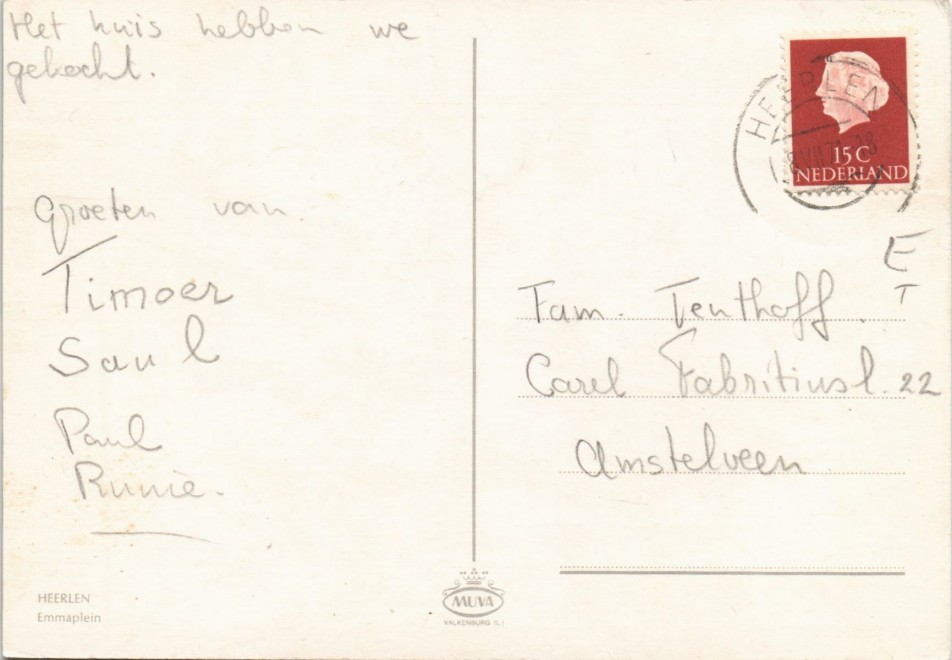 Het huis hebben we
gekocht.
Groeten van.
Timoer
Saul
Paul
Runie.
HEERLEN
Emmaplein
MUVA
VALKENBURG (L.)
HEERLEN
15 C
NEDERLAND
E
T
Fam. Tenthoff.
Carel Fabritiusl. 22
Amstelveen